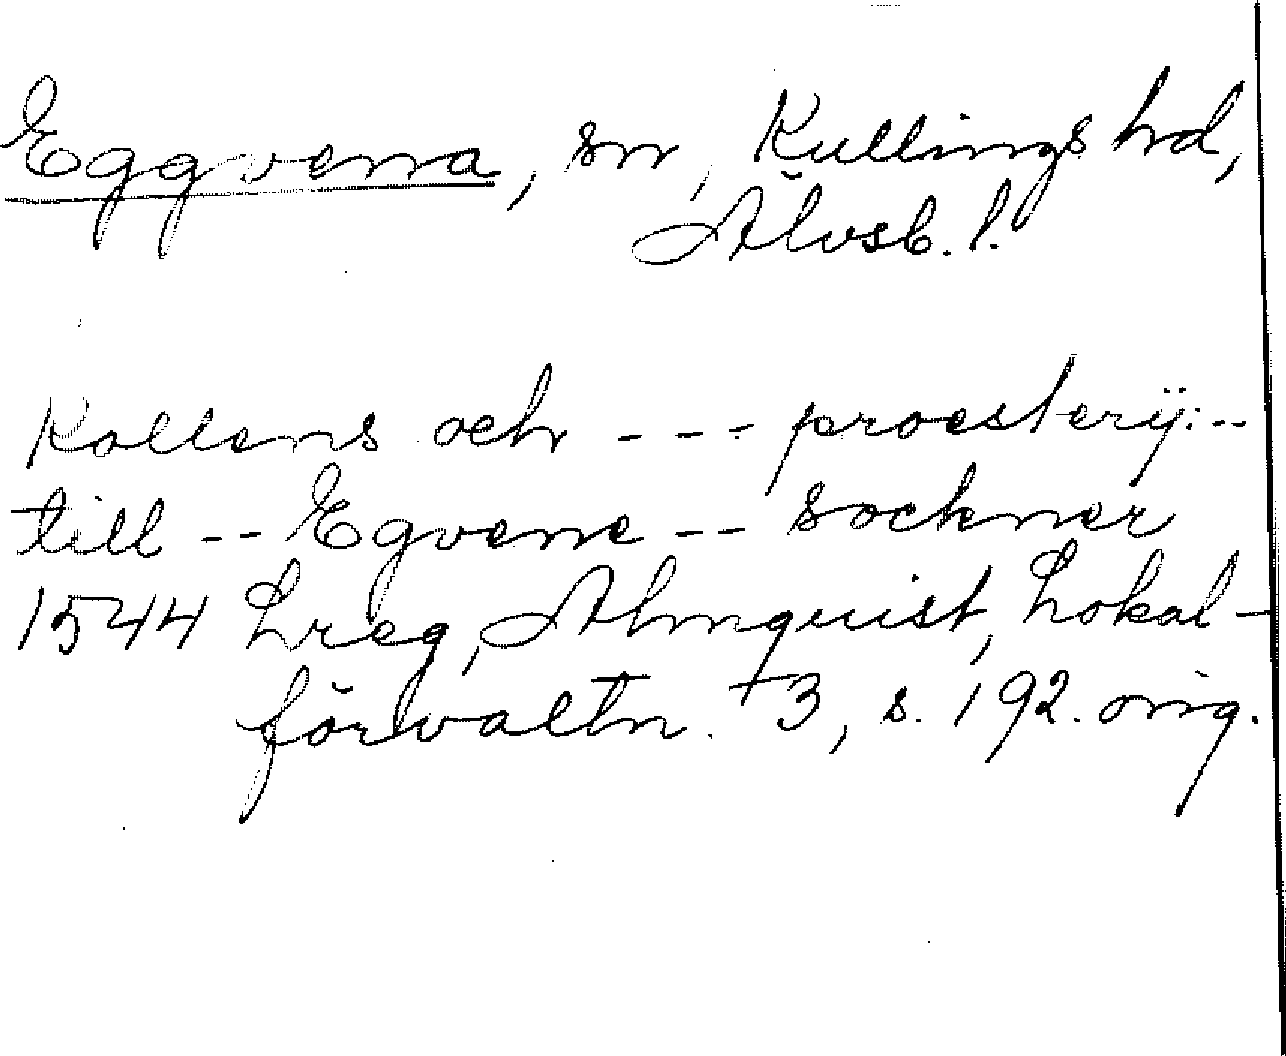 Eggvena, sn, Kullings hd,
Älvsb. l.
Kollens och --- proesterij:--
till -- Egvene -- sockner
1544 Lreg, Almquist, Lokal-
förvaltn. +3, s. 192. orig.